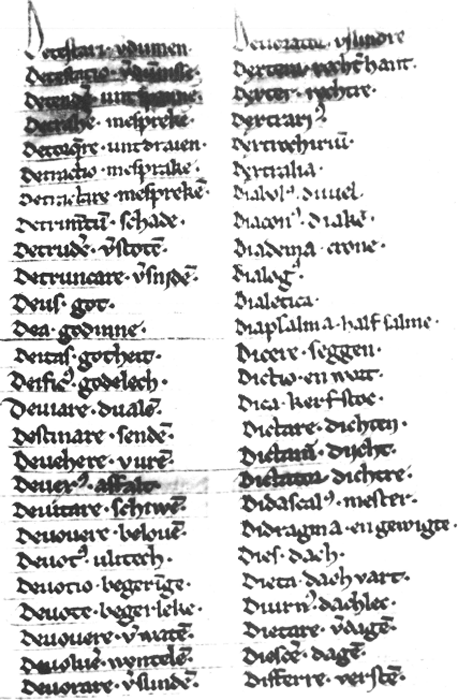 Detestari · vdumen
Detestatio ·
Detendere ·
Detrahe · mespreke
Detorqre · untdraien ·
Detractio · mesprake ·
Detrectare · mesprekē
Detrimētū · schade ·
Detrudē · v̄stotē ·
Detruncare · v̄snidē ·
Deus · got ·
Dea · godinne ·
Deitas · gotheit ·
Deificꝰ · godelech ·
Deuiare · dualē ·
Destinare · sendē ·
Deuehere · vurē ·
Deuexꝰ · affalt ·
Deuitare · schiwē ·
Deuouere · belouē ·
Deuotꝰ · ulitech ·
Deuotio · begerīge ·
Deuote · begerleke ·
Deuouere · v̄watē ·
Deuoluē · wentelē ·
Deuorare · v̄slundē ·
Deuorator · vslindre
Dextera · rechthant ·
Dexter · rechtre ·
Dextrariꝰ
Dextrochiriū ·
Dextralia ·
Diabolꝰ · duuel ·
Diaconꝰ · diakē ·
Diadema · crone ·
Dialogꝰ ·
Dialetica ·
Diapsalma · half salme ·
Dicere · seggen ·
Dictio · en wort ·
Dica · kerfstoc ·
Dictare · dichten ·
Dictamē · dijcht ·
Dictator · dichtre ·
Didascalꝰ · mester ·
Didragma · en gewigte ·
Dies · dach ·
Dieta · dachvart ·
Diurnꝰ · dachlec ·
Dietare · v̄dagē ·
Diescē · dagē ·
Differre · verstē ·